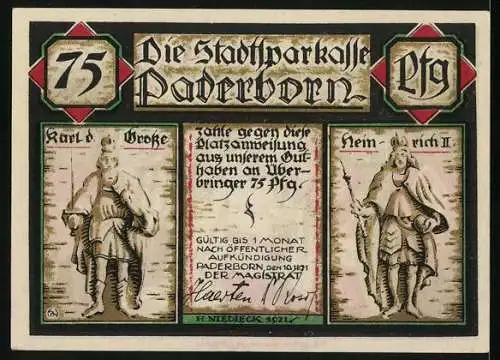 75
Die Stadtsparkasse
Paderborn
Pfg
Karl d. Große
zahle gegen diese
Platzanweisung
aus unserem Gut-
haben an Über-
bringer 75 Pfg.
GÜLTIG BIS 1 MONAT
NACH ÖFFENTLICHER
AUFKÜNDIGUNG
PADERBORN DEN 10.11.21
DER MAGISTRAT
Haerten
H. NIEDIECK 1921
Hein-rich II.